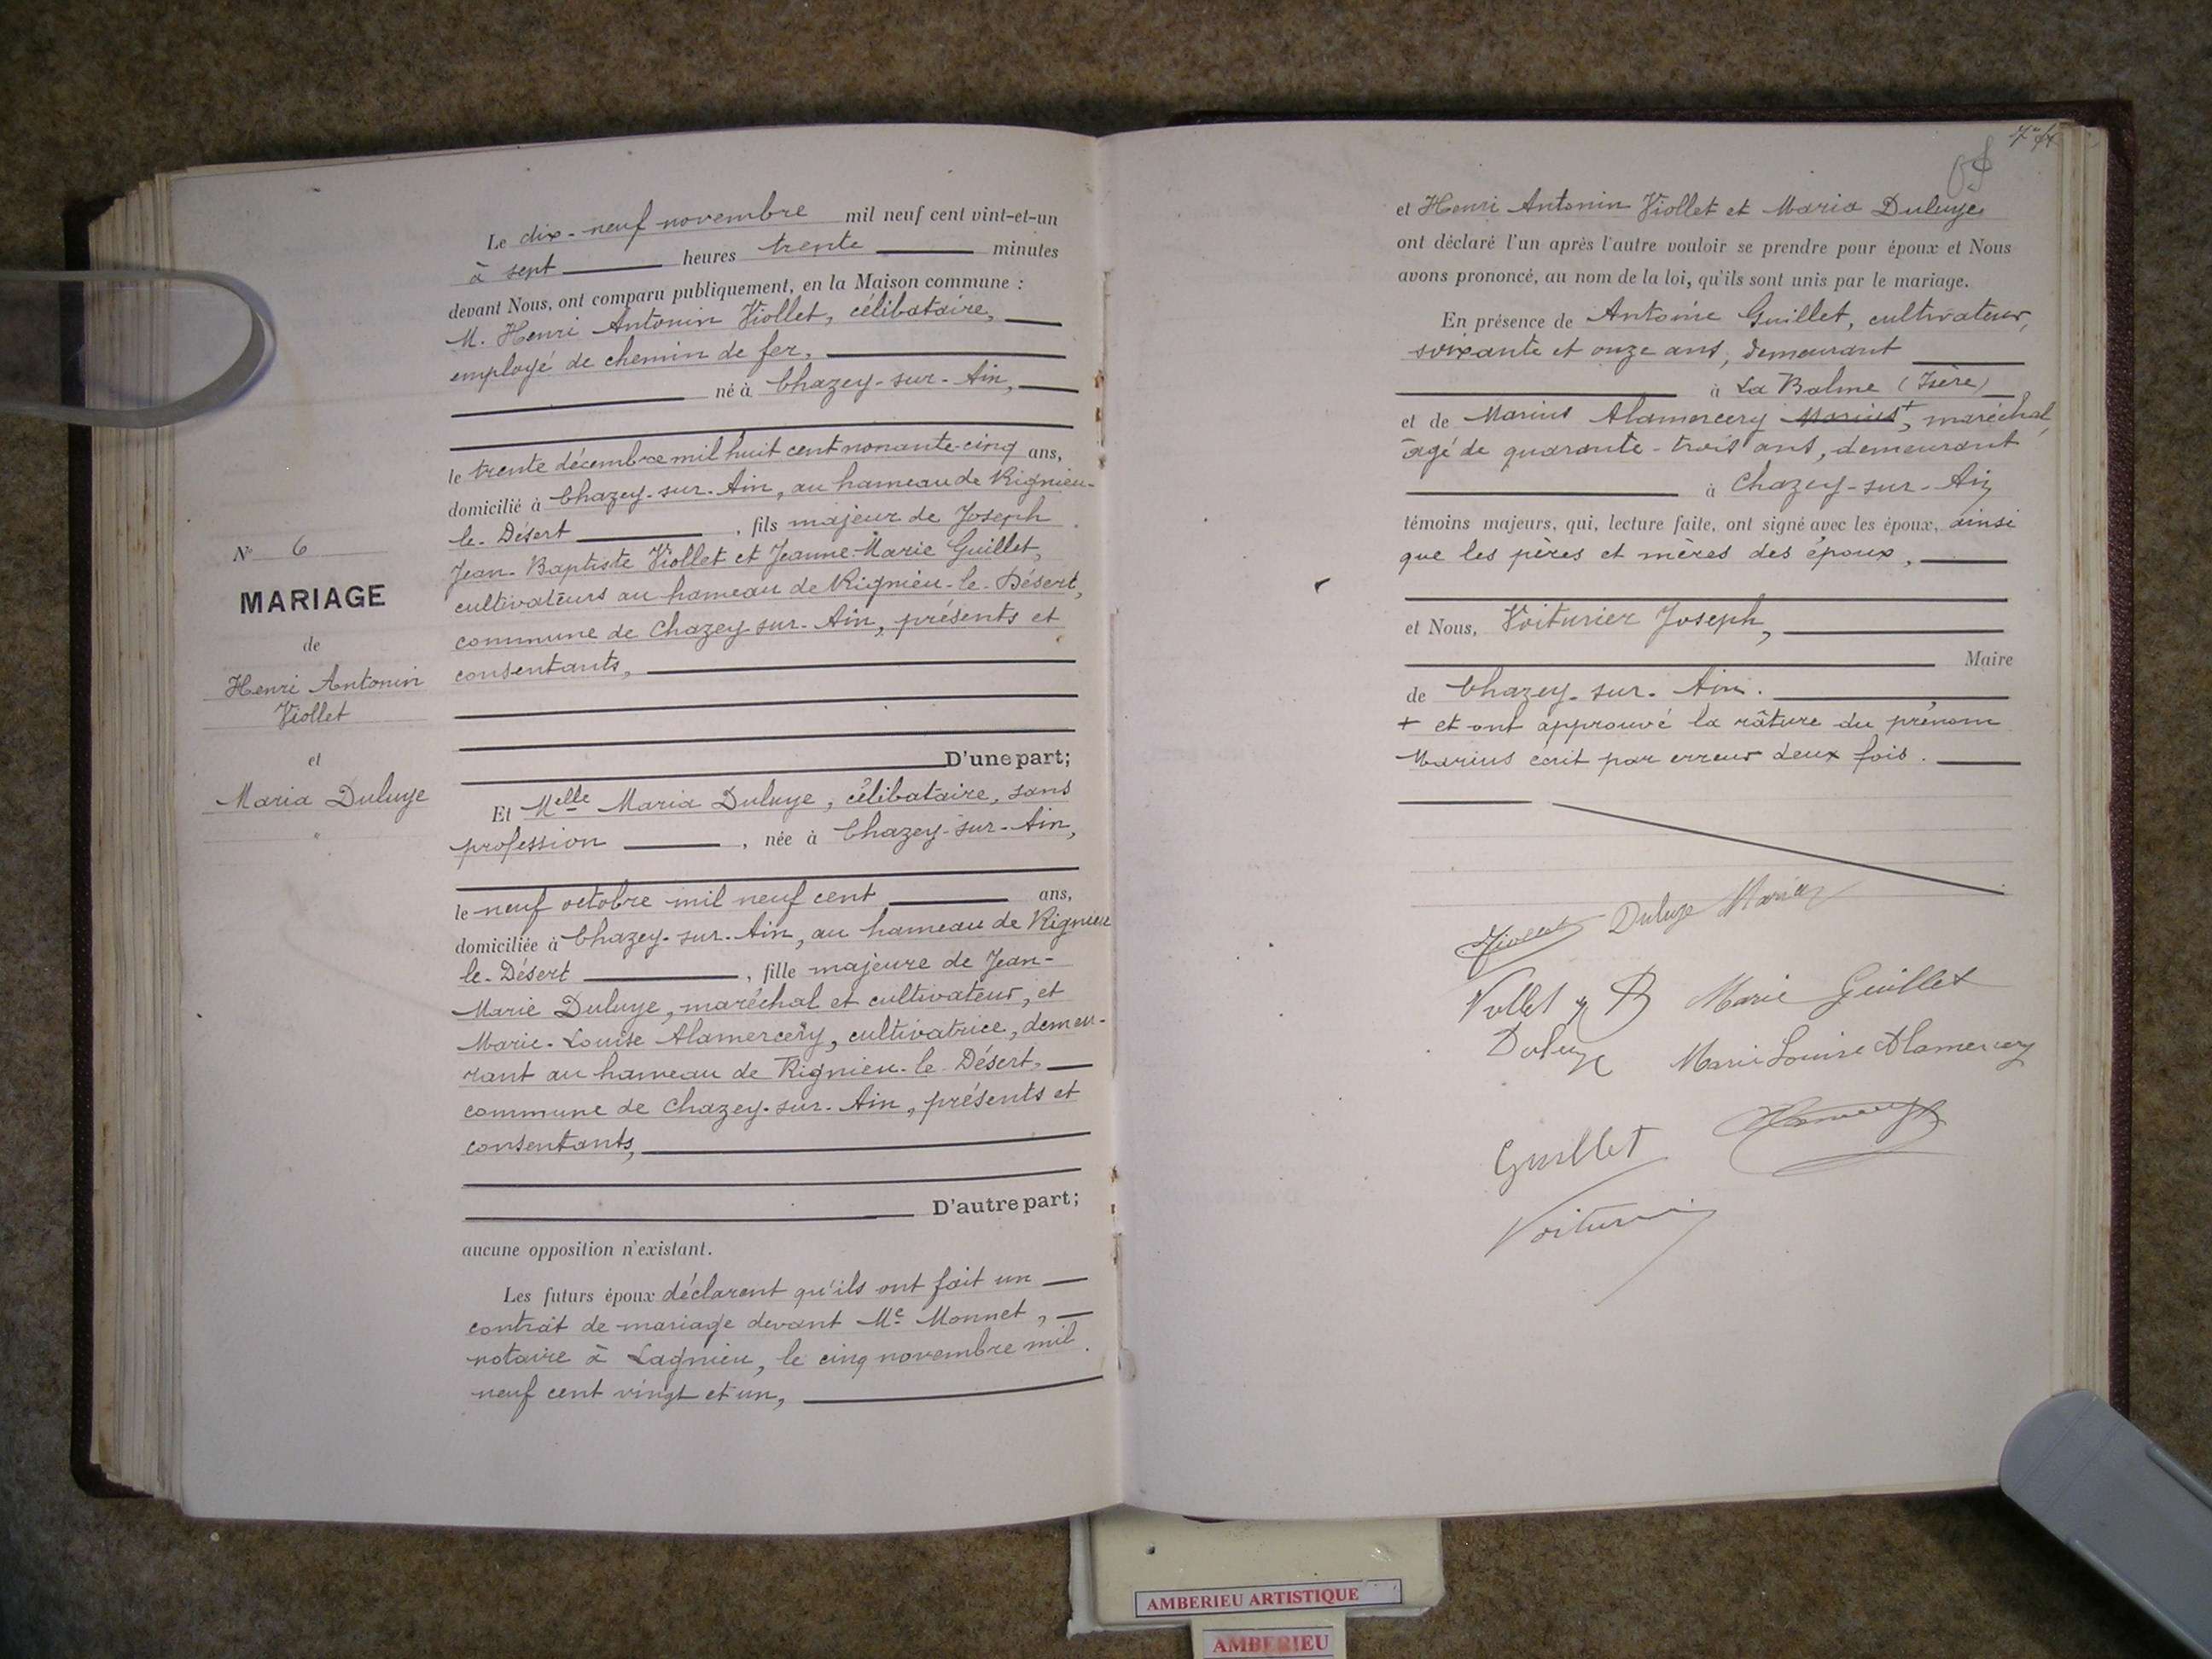 Le dix-neuf novembre mil neuf cent vint-et-un
à sept heures trente minutes
devant Nous, ont comparu publiquement, en la Maison commune :
M. Henri Antonin Viollet, célibataire,
employé de chemin de fer,
né à Chazey-sur-Ain,
le trente décembre mil huit cent nonante-cinq ans,
domicilié à Chazey-sur-Ain, au hameau de Rignieu-
le-Désert, fils majeur de Joseph
Jean-Baptiste Viollet et Jeanne-Marie Guillet,
cultivateurs au hameau de Rignieu-le-Désert,
commune de Chazey-sur-Ain, présents et
consentants,
D'une part;
Et Melle Maria Duluye, célibataire, sans
profession, née à Chazey-sur-Ain,
le neuf octobre mil neuf cent ans,
domiciliée à Chazey-sur-Ain, au hameau de Rignieu
le-Désert, fille majeure de Jean-
Marie Duluye, maréchal et cultivateur, et
Marie-Louise Alamercery, cultivatrice, demeu-
rant au hameau de Rignieu-le-Désert,
commune de Chazey-sur-Ain, présents et
consentants,
D'autre part;
aucune opposition n'existant.
Les futurs époux déclarent qu'ils ont fait un
contrat de mariage devant Me Monnet,
notaire à Lagnieu, le cinq novembre mil
neuf cent vingt et un,
No 6
MARIAGE
de
Henri Antonin
Viollet
et
Maria Duluye
et Henri Antonin Viollet et Maria Duluye
ont déclaré l'un après l'autre vouloir se prendre pour époux et Nous
avons prononcé, au nom de la loi, qu'ils sont unis par le mariage.
En présence de Antoine Guillet, cultivateur,
soixante et onze ans, demeurant
à La Balme (Isère)
et de Marius Alamercery Marius+, maréchal,
âgé de quarante-trois ans, demeurant
à Chazey-sur-Ain
témoins majeurs, qui, lecture faite, ont signé avec les époux, ainsi
que les pères et mères des époux,
et Nous, Voiturier Joseph,
Maire
de Chazey-sur-Ain.
+ et ont approuvé la râture du prénom
Marius écrit par erreur deux fois.
Viollet Duluye Maria
Marie Guillet
Duluye Marie Louise Alamercery
Guillet
AMBERIEU ARTISTIQUE
AMBERIEU